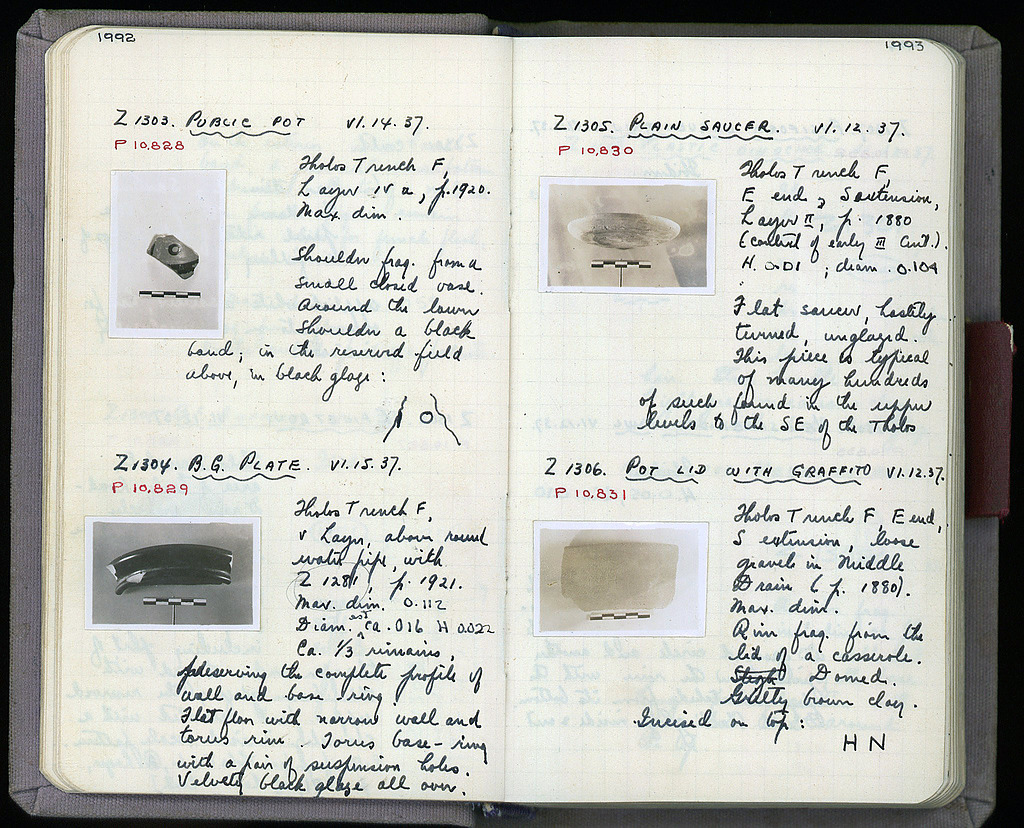 1992
Z 1303. PUBLIC POT VI.14.37.
P 10,828
Tholos Trench F,
Layer IV a, p. 1920.
Max. dim.
Shoulder frag. from a
small closed vase.
Around the lower
shoulder a black
band; in the reserved field
above, in black glaze:
O
Z 1304. B.G. PLATE. VI.15.37.
P 10,829
Tholos Trench F,
V Layer, above round
water pipe, with
Z 1281, p. 1921.
Max. dim. 0.112
Diam. est. ca. 016 H 0.022
Ca. 1/3 remains,
preserving the complete profile of
wall and base ring.
Flat floor with narrow wall and
torus rim. Torus base-ring
with a pair of suspension holes.
Velvety black glaze all over.
1993
Z 1305. PLAIN SAUCER. VI.12.37.
P 10,830
Tholos Trench F,
E end, S extension,
Layer II, p. 1880
(context of early III Cent.).
H. 0.01 ; diam. 0.104
Flat saucer, hastily
turned, unglazed.
This piece is typical
of many hundreds
of such found in the upper
levels to the SE of the Tholos
Z 1306. POT LID WITH GRAFFITO VI.12.37.
P 10,831
Tholos Trench F, E end,
S extension, loose
gravels in Middle
Drain (p. 1880).
Max. dim.
Rim frag. from the
lid of a casserole.
Domed.
Gritty brown clay.
Incised on top:
HN